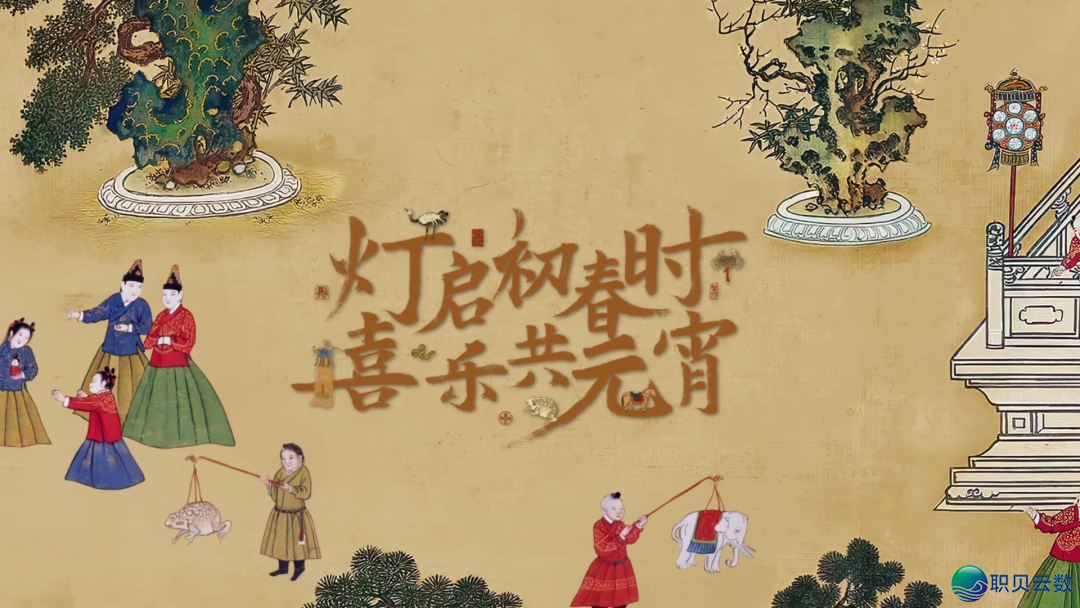 灯启初春时
喜乐共元宵
职贝云数